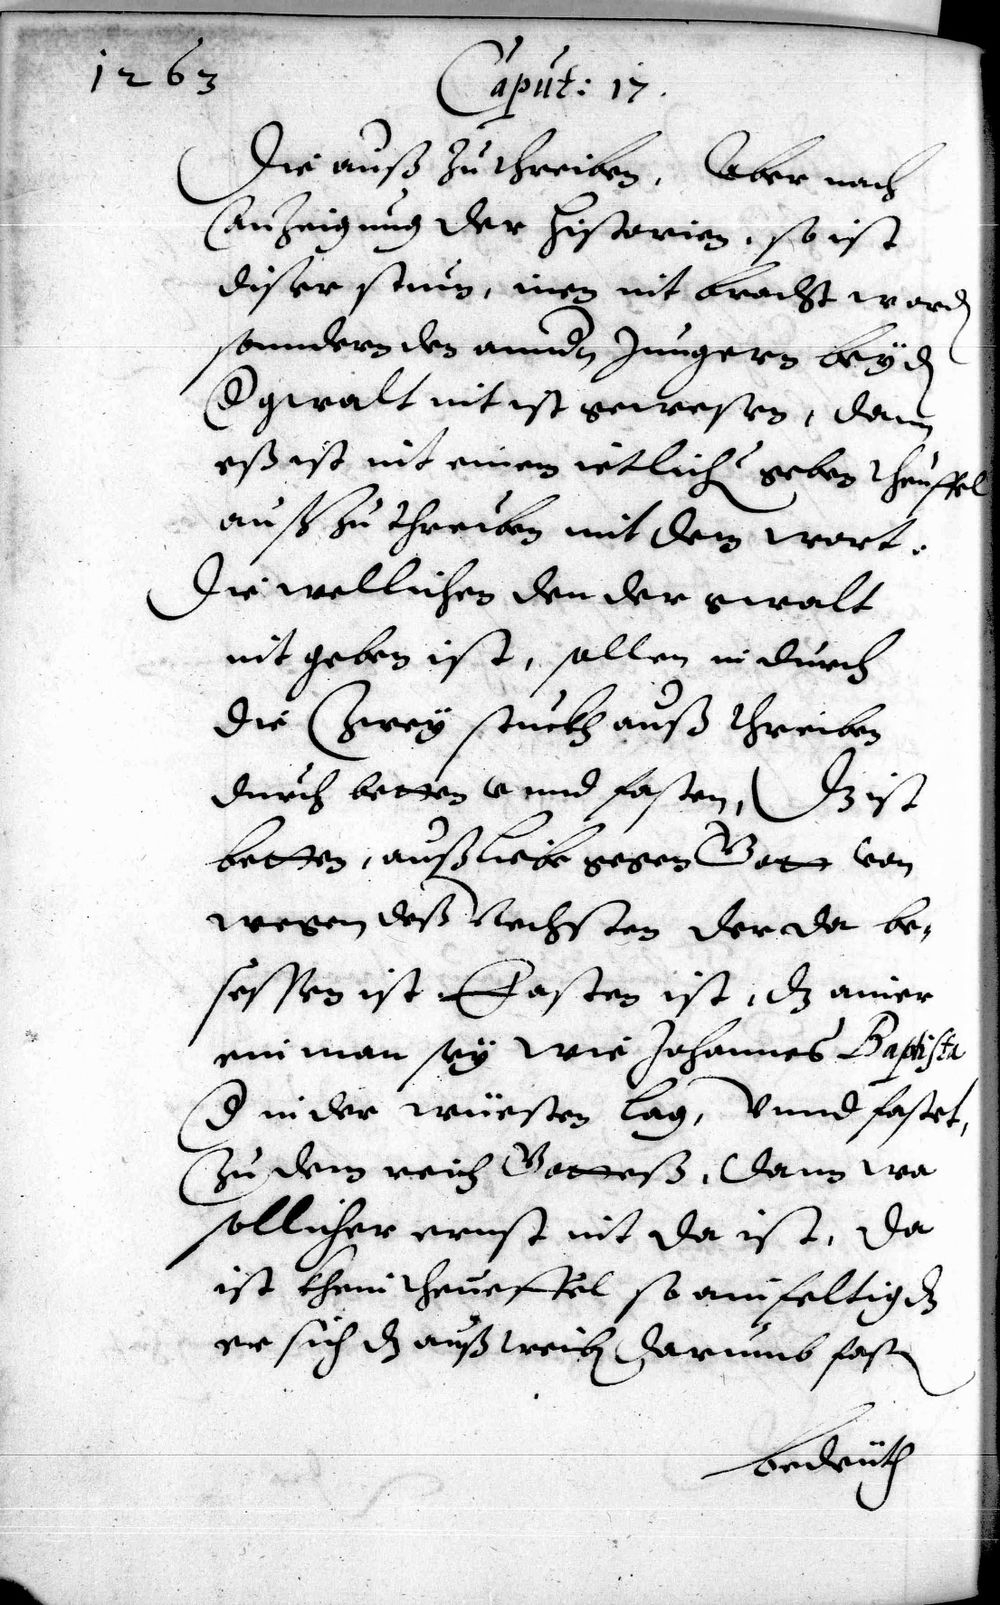 1263 Caput: 17.
Die auß zu threiben, Aber nach
Anzeigung der Historien, so ist
diser stum, inen nit bracht word
sonndern den anndn Jungern beÿ d
d gwalt nit ist gewesen, dann
eß ist nit einem ietlich geben theuffel
auß zu threiben mit dem wort.
Die wellichen den der gwalt
nit geben ist, sollen in durch
die Zweÿ stuckh auß threiben
durch betten vnnd fasten, Dz ist
betten, auß liebe gegen Gott von
wegen deß Nechsten der da be,
sessen ist Fasten ist, dz ainer
ein man seÿ wie Johannes Baptista
d in der wüesten lag, Vnnd fastet,
Zu dem reich Gotteß, dann wa
sollicher ernst nit da ist, da
ist khein theueffel so ainfeltig dz
er sich dz auß treib darumb fast
bedeüth